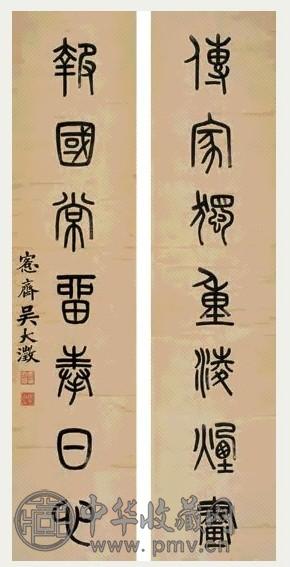 傳家獨重淩煙畫
報國常留奉日心
愙齋吳大澂
中华收藏网
www.pmv.cn